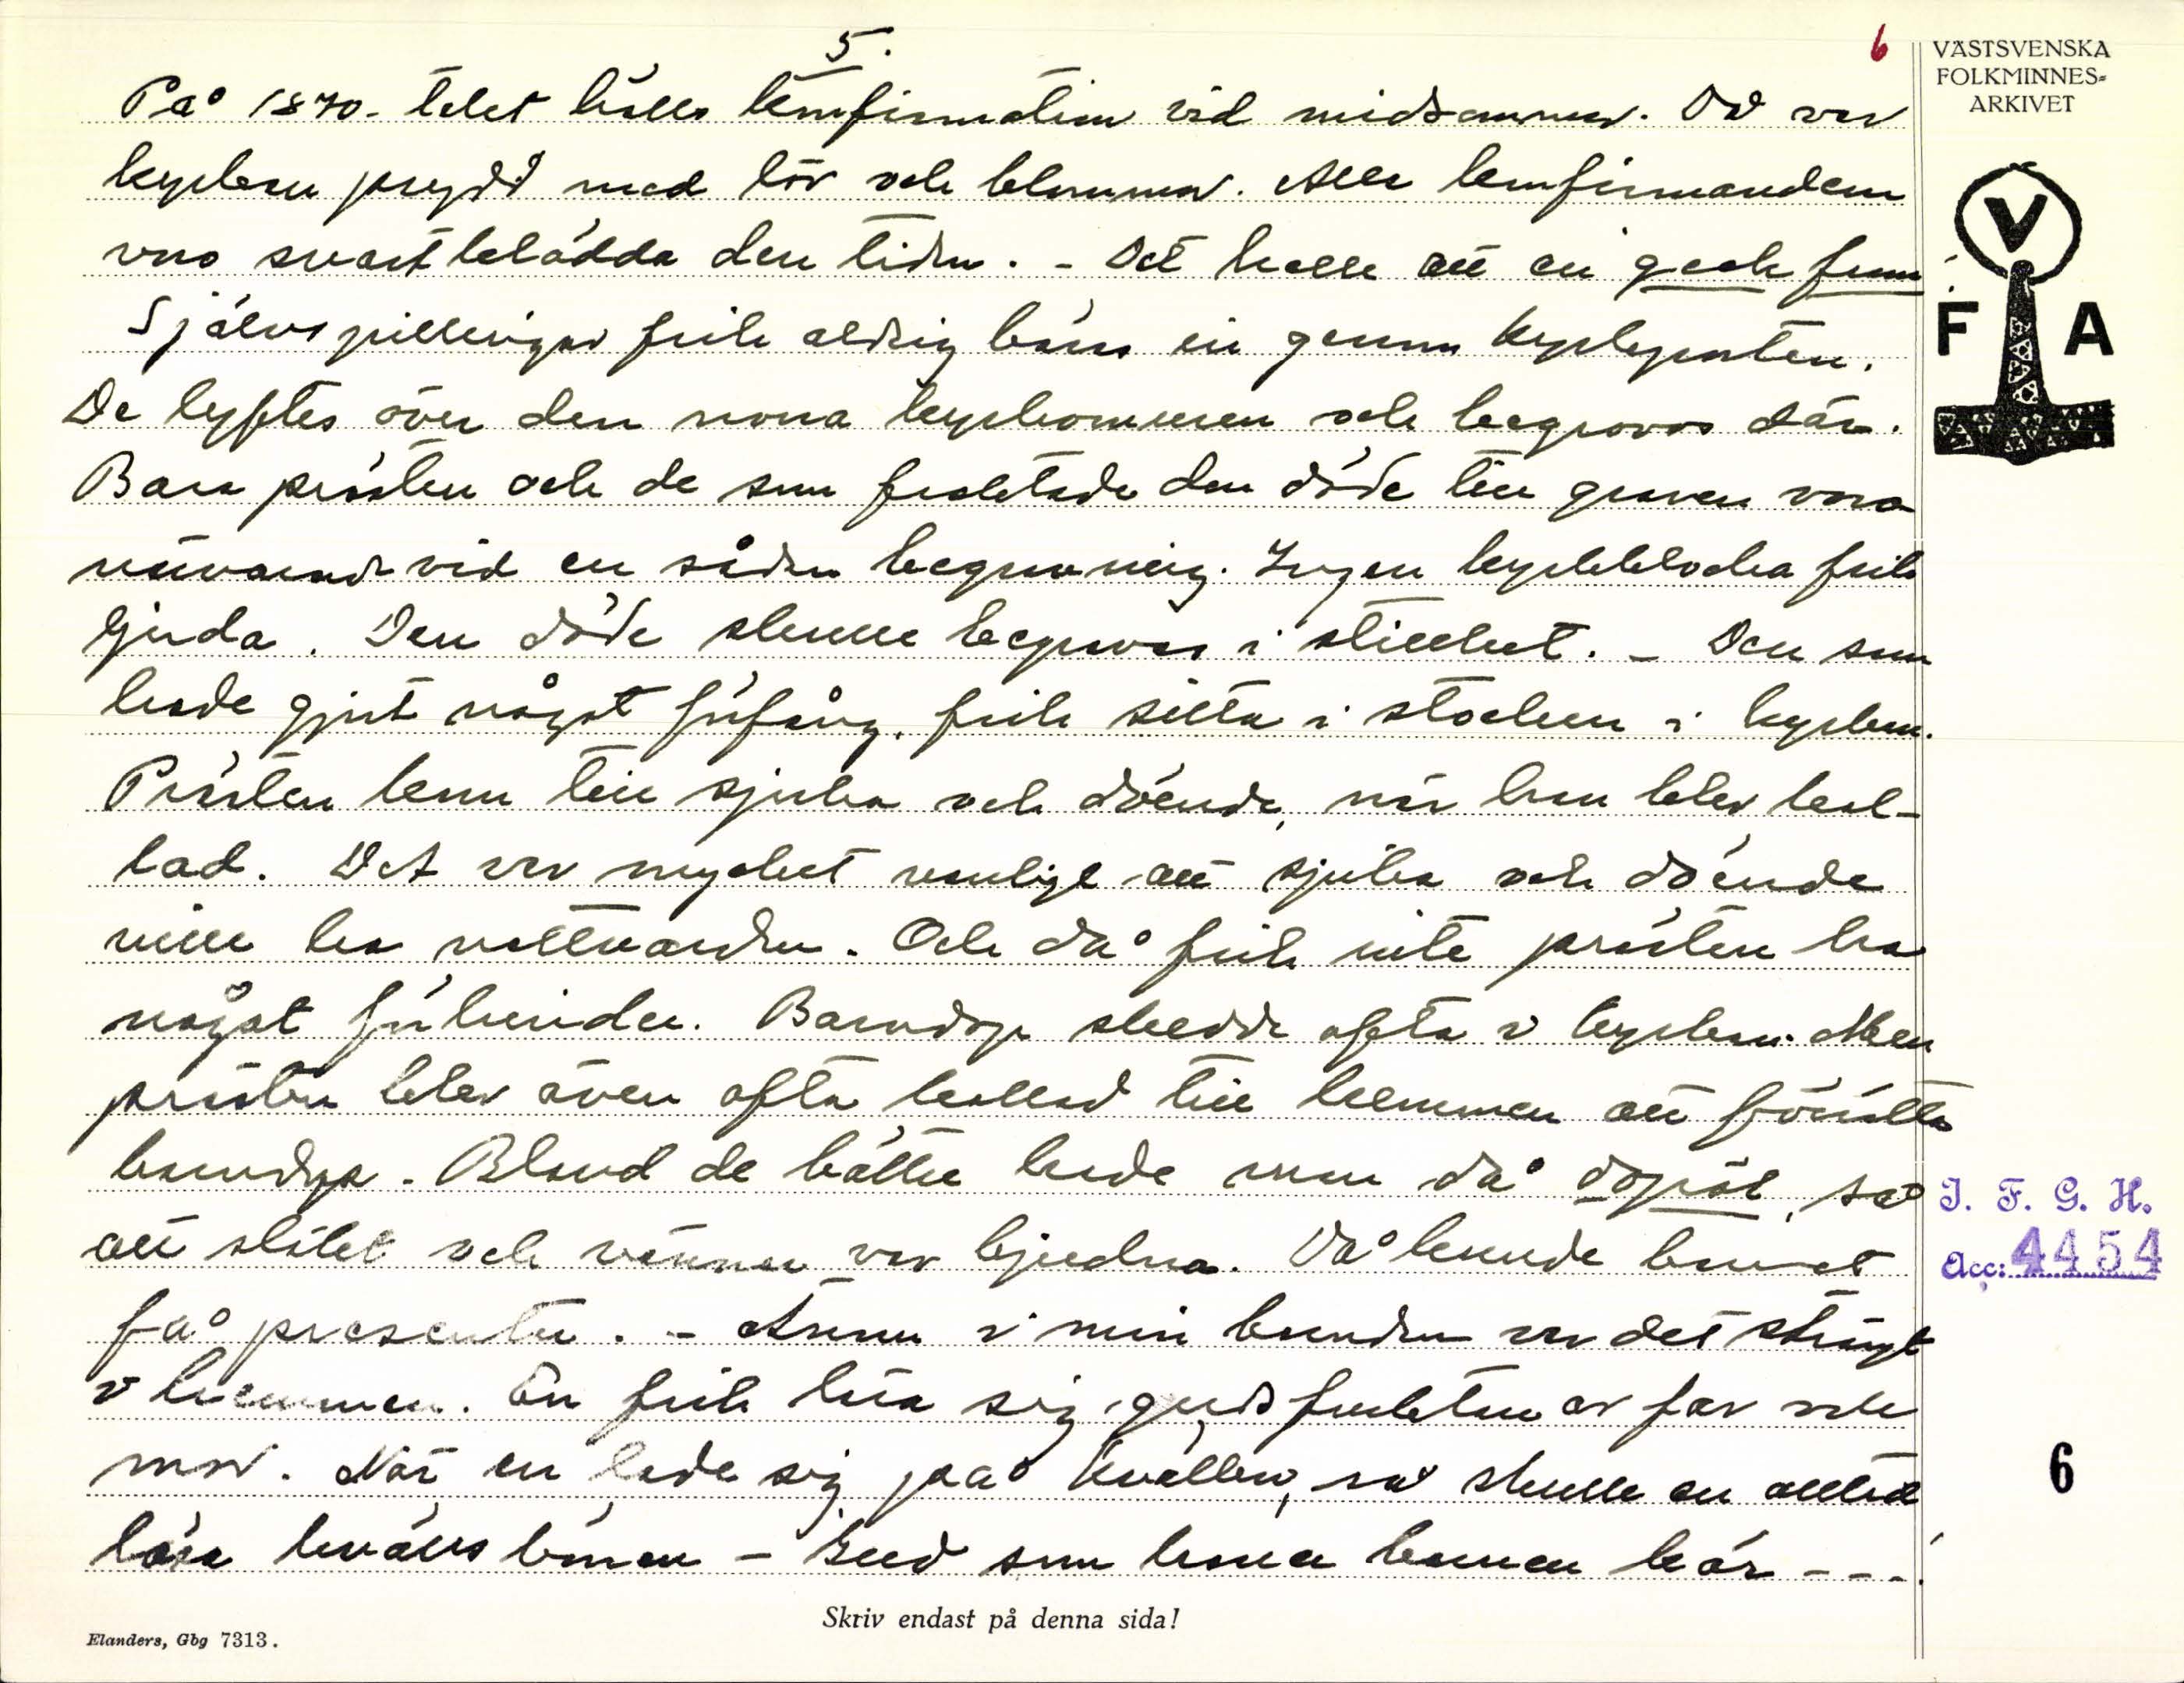 5.
6
VÄSTSVENSKA
FOLKMINNES-
ARKIVET
På 1870-talet hölls konfirmation vid midsommar. Då var
kyrkan prydd med löv och blommor. Alla konfirmandem
voro svartklädda den tiden. - Det kalla att en geck fram.
Självspillingar fick aldrig bäras in genom kyrkporten.
De lyftes över den norra kyrkomuren och begrovos där.
Bara prästen och de som fraktade den döde till graven voro
närvarande vid en sådan begravning. Ingen kyrkklocka fick
ljuda. Den döde skulle begravas i stillhet. - Den som
hade gjort något förfång, fick sitta i stocken i kyrkan.
Prästen kom till sjuka och döende, när han blev kal-
lad. Det var mycket vanligt att sjuka och döende
ville ha nattvarden. Och då fick inte prästen ha
något förhinder. Barndop skedde ofta i kyrkan. Men
prästen blev även ofta kallad till hemmen att förrätta
barndop. Bland de bättre hade man då dopöl, så
att släkt och vänner var bjudna. Då kunde barnet
få presenter. - Ännu i min barndom var det strängt
i hemmen. En fick lära sig gudsfruktan av far och
mor. När en lade sig på kvällen, så skulle en alltid
läsa kvällsbönen - Gud som haver barnen kär - - -.
V
F A
I. F. G. H.
Acc: 4454
6
Skriv endast på denna sida!
Elanders, Gbg 7313.